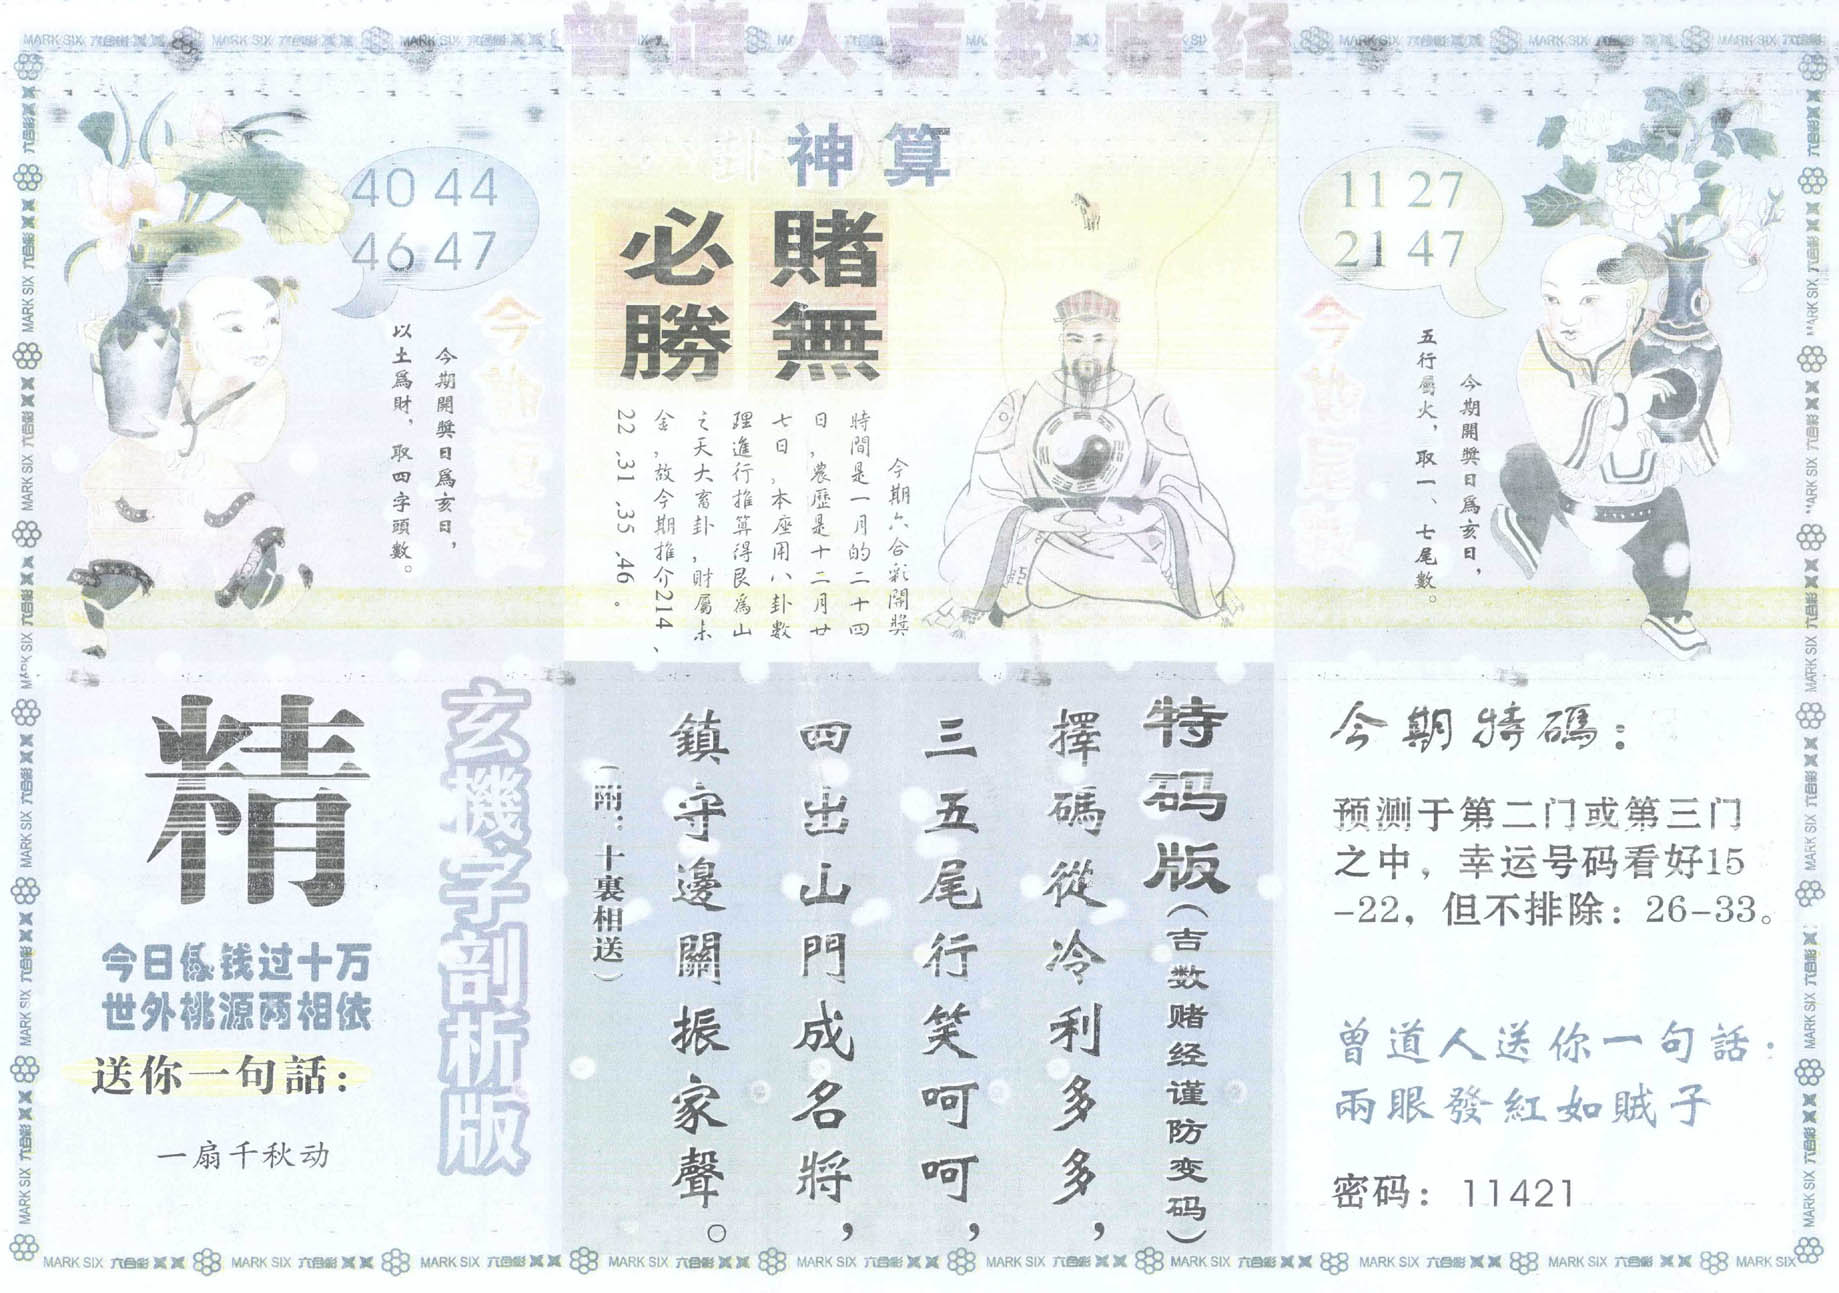 曾道人吉数赌经
40 44
46 47
今期開獎日爲亥日，
以土爲財，取四字頭數。
卦神算
賭無
必勝
今期六合彩開獎
時間是一月的二十四
日，農歷是十二月廿
七日，本座用八卦數
理進行推算得艮爲山
之天大畜卦，財屬未
金，故今期推介214、
22、31、35、46。
11 27
21 47
今期開獎日爲亥日，
五行屬火，取一、七尾數。
玄機字剖析版
精
今日係钱过十万
世外桃源两相依
送你一句話：
一扇千秋动
特码版（吉数赌经谨防变码）
擇碼從冷利多多，
三五尾行笑呵呵，
四出山門成名將，
鎮守邊關振家聲。
（附：十裏相送）
今期特碼：
预测于第二门或第三门
之中，幸运号码看好15
-22，但不排除：26-33。
曾道人送你一句話：
兩眼發紅如贼子
密码：11421
MARK SIX 六合彩